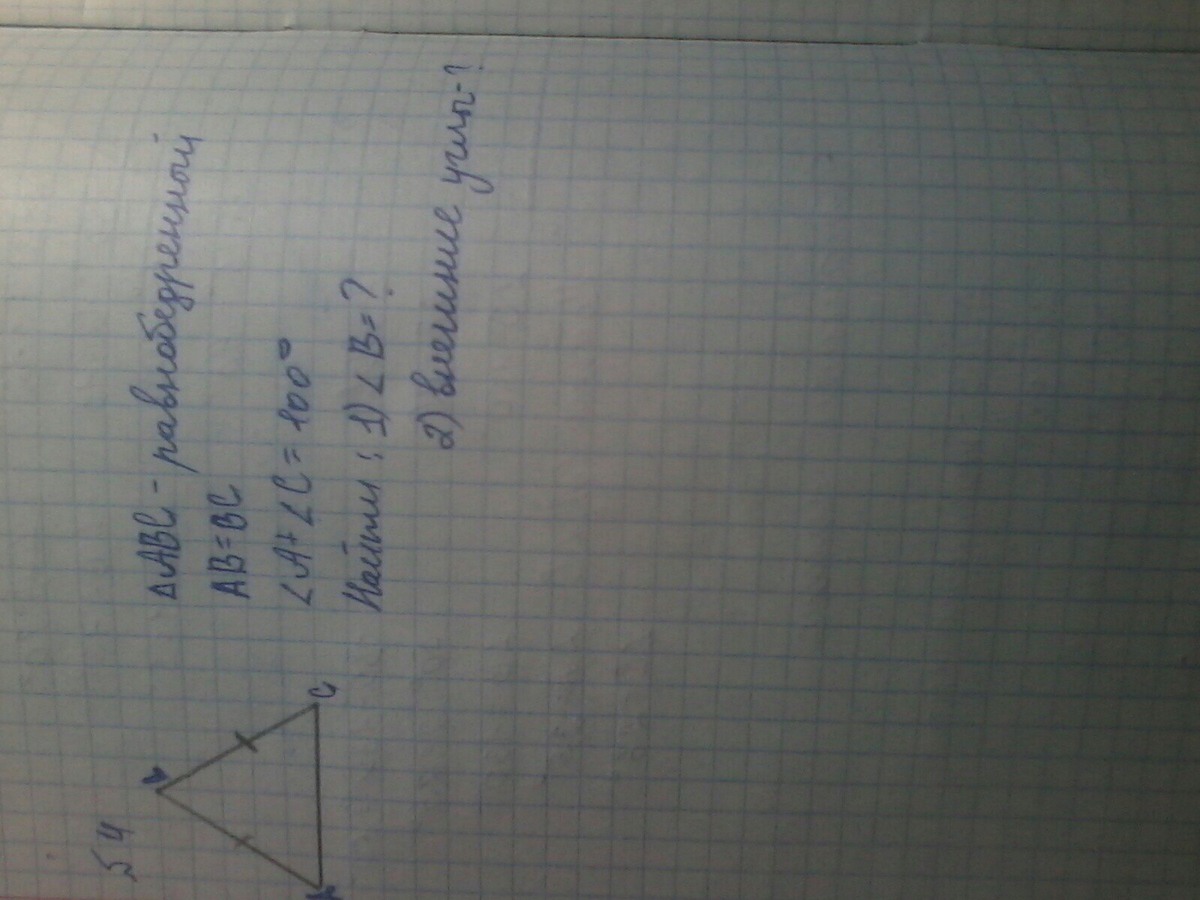 54
B
A
C
ΔABC - равнобедренный
AB=BC
∠A+∠C=100°
Найти: 1) ∠B=?
2) внешние углы-?